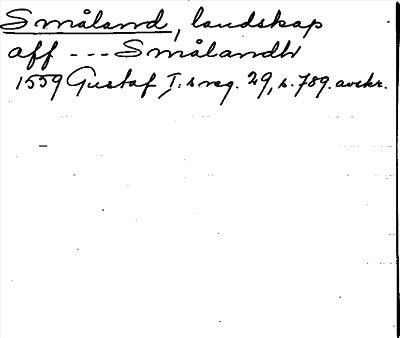 Småland, landskap
aff --- Smålandh
1559 Gustaf I:s reg. 29, s. 789. avskr.